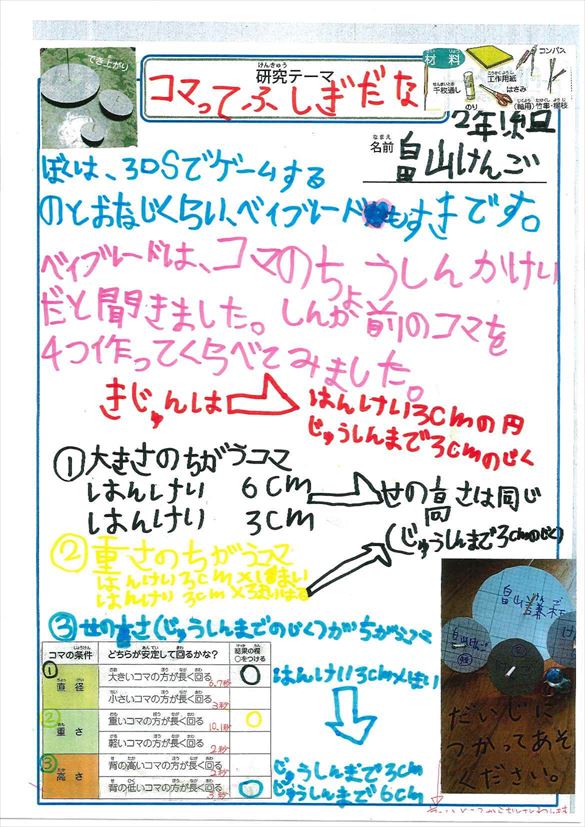 でき上がり
研究テーマ
けんきゅう
コマってふしぎだな
材料
コンパス
工作用紙
千枚通し
はさみ
のり
(軸用)竹串・楊枝
2年1組
名前
なまえ
畠山けんご
ぼくは、3DSでゲームする
のとおなじくらい、ベイブレードもすきです。
ベイブレードは、コマのちょうしんかけい
だと聞きました。しんが前のコマを
4つ作ってくらべてみました。
きじゅんは
はんけい3cmの円
じゅうしんまで3cmのじく
①大きさのちがうコマ
はんけい 6cm
はんけい 3cm
せの高さは同じ
(じゅうしんまで3cmのじく)
②重さのちがうコマ
はんけい3cm×1まい
はんけい3cm×3まい
③せの高さ(じゅうしんまでのじく)がちがうコマ
コマの条件
どちらが安定して回るかな?
結果の欄
○をつける
① 直径
大きいコマの方が長く回る
6.7秒
小さいコマの方が長く回る
3秒
② 重さ
重いコマの方が長く回る
10.1秒
軽いコマの方が長く回る
2秒
③ 高さ
背の高いコマの方が長く回る
2秒
背の低いコマの方が長く回る
3秒
はんけい3cm×1まい
じゅうしんまで3cm
じゅうしんまで6cm
だいじに
つかってあそ
んでください。